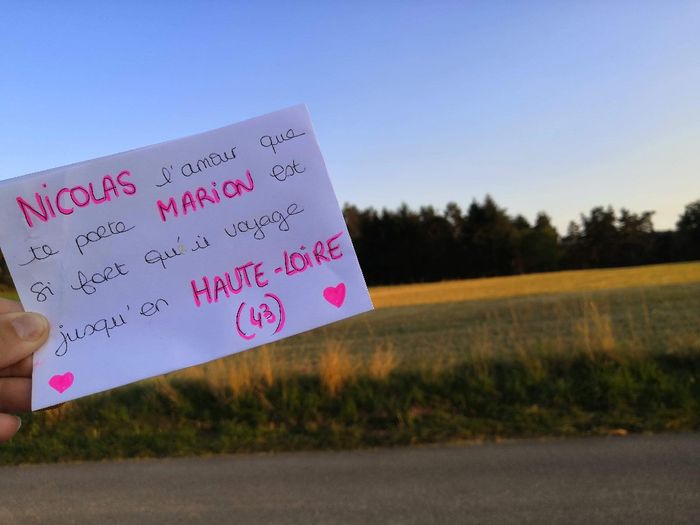 NICOLAS l'amour que
te porte MARION est
si fort qu'il voyage
jusqu'en HAUTE-LOIRE
(43)